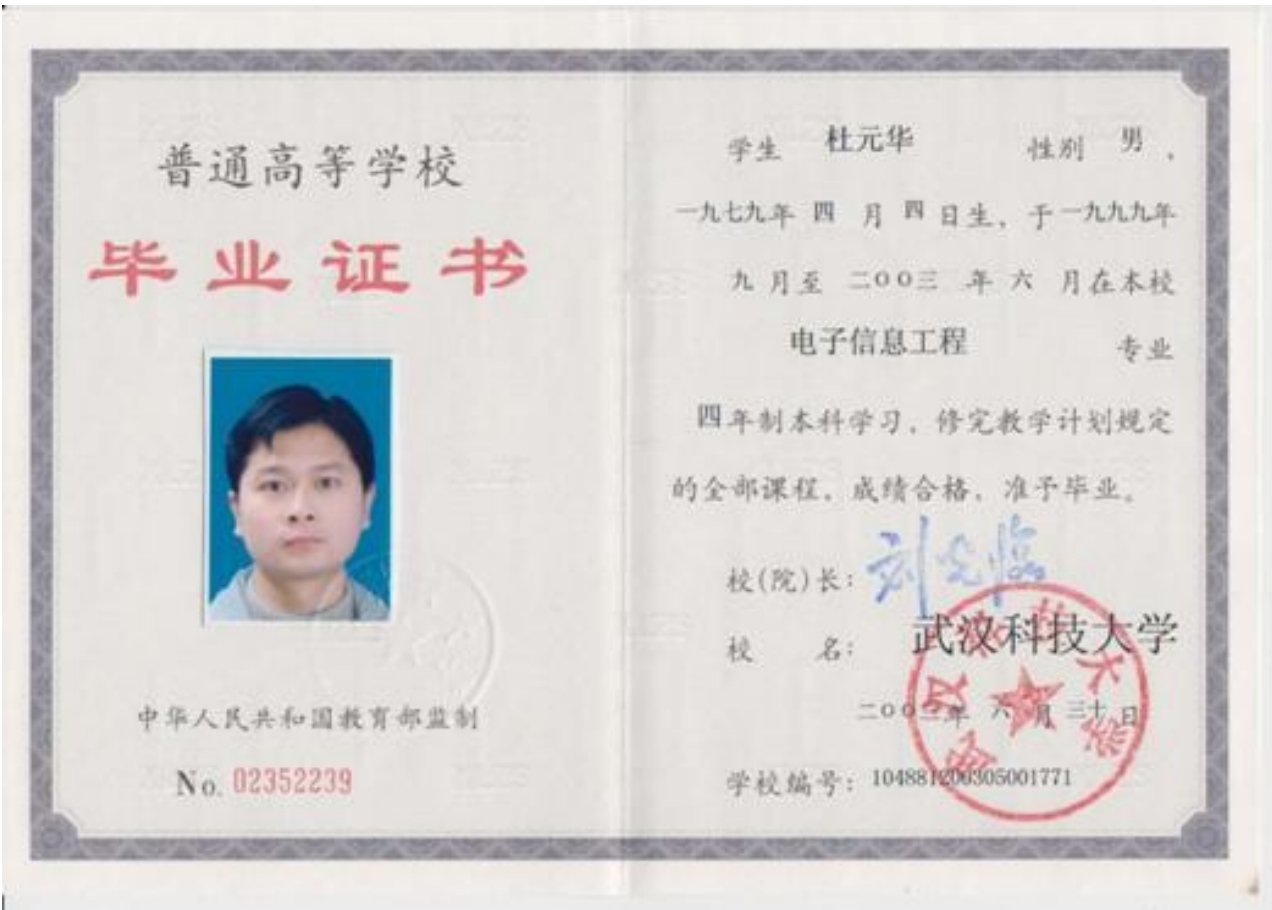 普通高等学校
毕业证书
中华人民共和国教育部监制
No. 02352239
学生 杜元华 性别 男，
一九七九年 四 月 四 日生，于一九九九年
九 月至 二〇〇三 年 六 月在本校
电子信息工程 专业
四年制本科学习，修完教学计划规定
的全部课程，成绩合格，准予毕业。
校(院)长：刘光临
校 名：武汉科技大学
二〇〇三年 六 月 三十 日
学校编号：104881200305001771
武汉科技大学